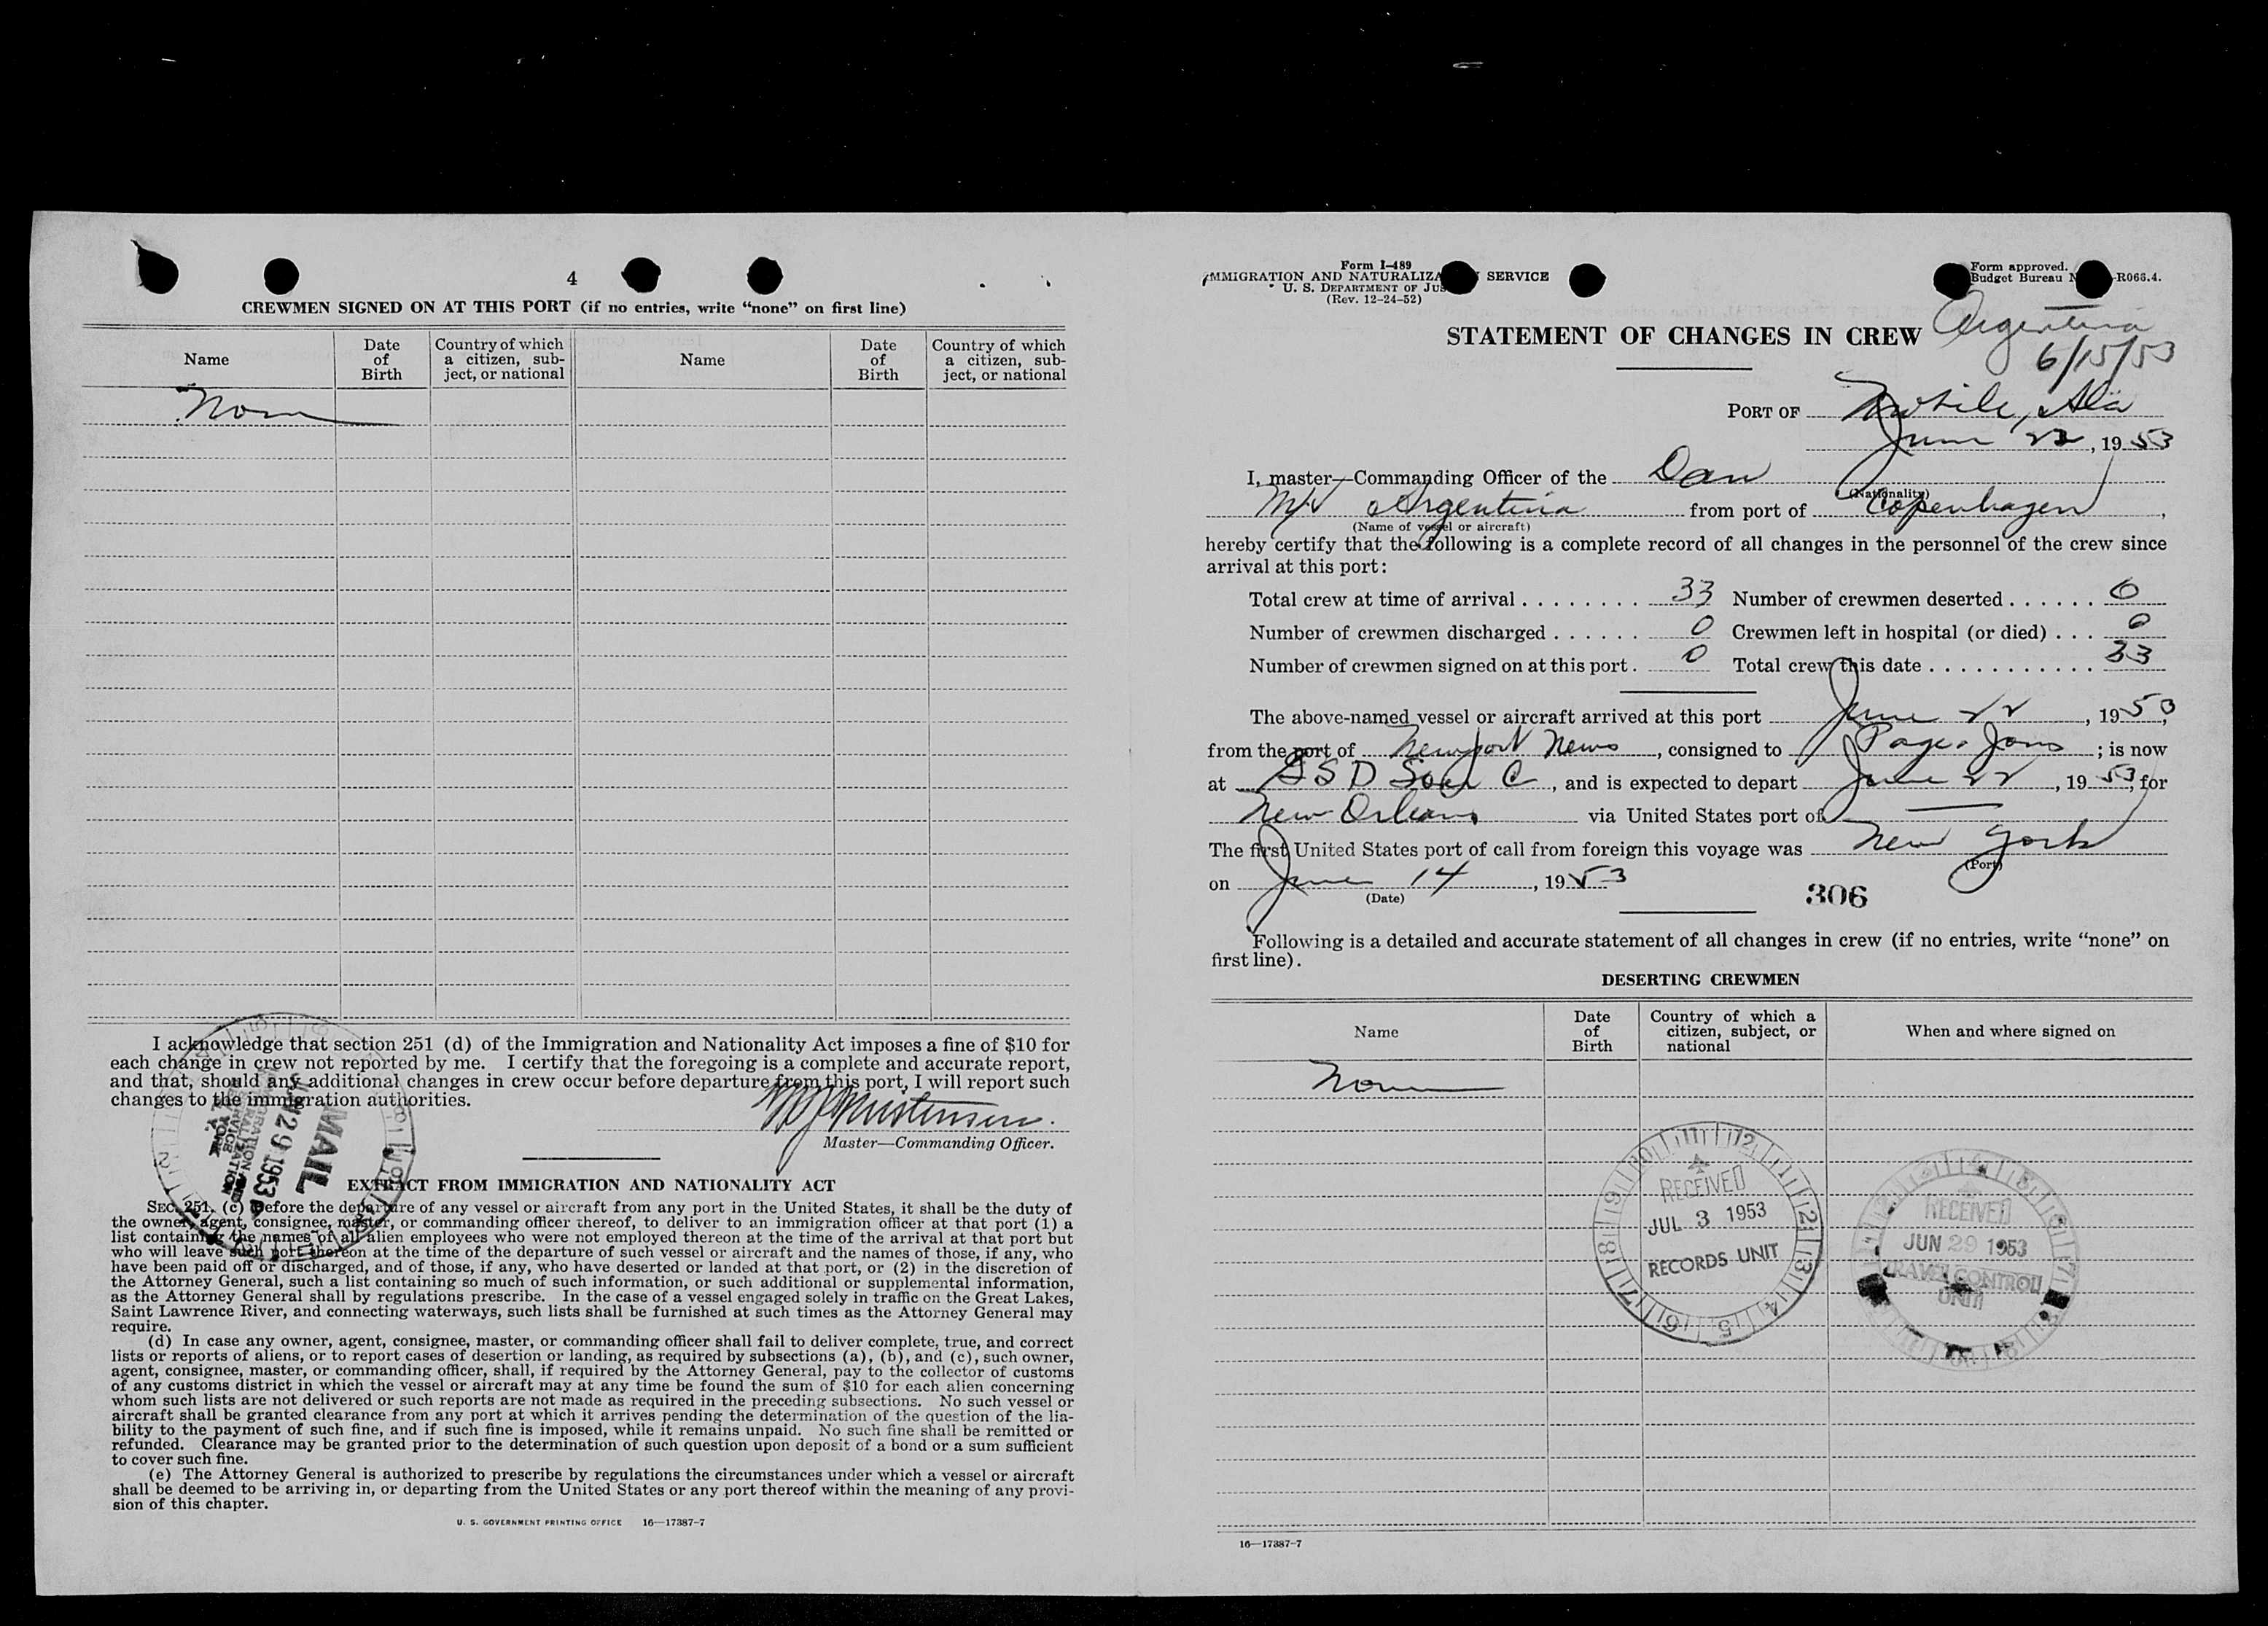 4
CREWMEN SIGNED ON AT THIS PORT (if no entries, write “none” on first line)
Name
Date of Birth
Country of which a citizen, subject, or national
Name
Date of Birth
Country of which a citizen, subject, or national
I acknowledge that section 251 (d) of the Immigration and Nationality Act imposes a fine of $10 for
each change in crew not reported by me. I certify that the foregoing is a complete and accurate report,
and that, should any additional changes in crew occur before departure from this port, I will report such
changes to the immigration authorities.
Master—Commanding Officer.
MAIL
29 1953
EXTRACT FROM IMMIGRATION AND NATIONALITY ACT
SEC. 251. (c) Before the departure of any vessel or aircraft from any port in the United States, it shall be the duty of
the owner, agent, consignee, master, or commanding officer thereof, to deliver to an immigration officer at that port (1) a
list containing the names of all alien employees who were not employed thereon at the time of the arrival at that port but
who will leave such port thereon at the time of the departure of such vessel or aircraft and the names of those, if any, who
have been paid off or discharged, and of those, if any, who have deserted or landed at that port, or (2) in the discretion of
the Attorney General, such a list containing so much of such information, or such additional or supplemental information,
as the Attorney General shall by regulations prescribe. In the case of a vessel engaged solely in traffic on the Great Lakes,
Saint Lawrence River, and connecting waterways, such lists shall be furnished at such times as the Attorney General may
require.
(d) In case any owner, agent, consignee, master, or commanding officer shall fail to deliver complete, true, and correct
lists or reports of aliens, or to report cases of desertion or landing, as required by subsections (a), (b), and (c), such owner,
agent, consignee, master, or commanding officer, shall, if required by the Attorney General, pay to the collector of customs
of any customs district in which the vessel or aircraft may at any time be found the sum of $10 for each alien concerning
whom such lists are not delivered or such reports are not made as required in the preceding subsections. No such vessel or
aircraft shall be granted clearance from any port at which it arrives pending the determination of the question of the lia-
bility to the payment of such fine, and if such fine is imposed, while it remains unpaid. No such fine shall be remitted or
refunded. Clearance may be granted prior to the determination of such question upon deposit of a bond or a sum sufficient
to cover such fine.
(e) The Attorney General is authorized to prescribe by regulations the circumstances under which a vessel or aircraft
shall be deemed to be arriving in, or departing from the United States or any port thereof within the meaning of any provi-
sion of this chapter.
U. S. GOVERNMENT PRINTING OFFICE 16—17387-7
Form I-489
IMMIGRATION AND NATURALIZA SERVICE
U. S. DEPARTMENT OF JUS
(Rev. 12-24-52)
Form approved.
Budget Bureau N -R066.4.
STATEMENT OF CHANGES IN CREW
Argentina
6/15/53
PORT OF Mobile, Ala
June 22, 1953
I, master—Commanding Officer of the Dan
(Nationality)
M/V Argentina from port of Copenhagen,
(Name of vessel or aircraft)
hereby certify that the following is a complete record of all changes in the personnel of the crew since
arrival at this port:
Total crew at time of arrival 33 Number of crewmen deserted 0
Number of crewmen discharged 0 Crewmen left in hospital (or died) 0
Number of crewmen signed on at this port 0 Total crew this date 33
The above-named vessel or aircraft arrived at this port June 22, 1953,
from the port of Newport News, consigned to Page & Jons; is now
at S D C, and is expected to depart June 22, 1953, for
New Orleans via United States port of —
The first United States port of call from foreign this voyage was New York
(Port)
on June 14, 1953
(Date)
306
Following is a detailed and accurate statement of all changes in crew (if no entries, write “none” on
first line).
DESERTING CREWMEN
Name
Date of Birth
Country of which a citizen, subject, or national
When and where signed on
RECEIVED
JUL 3 1953
RECORDS UNIT
RECEIVED
JUN 29 1953
TRAVEL CONTROL
UNIT
16—17387-7